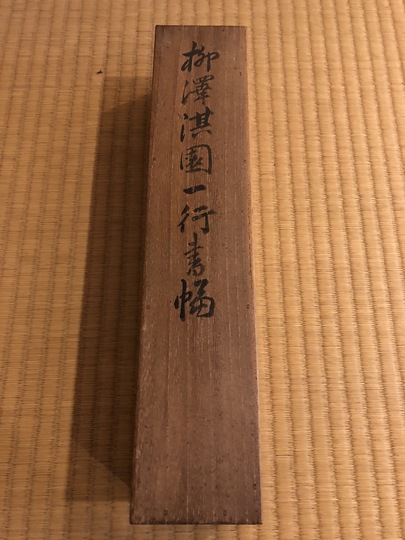 柳澤淇園一行書幅